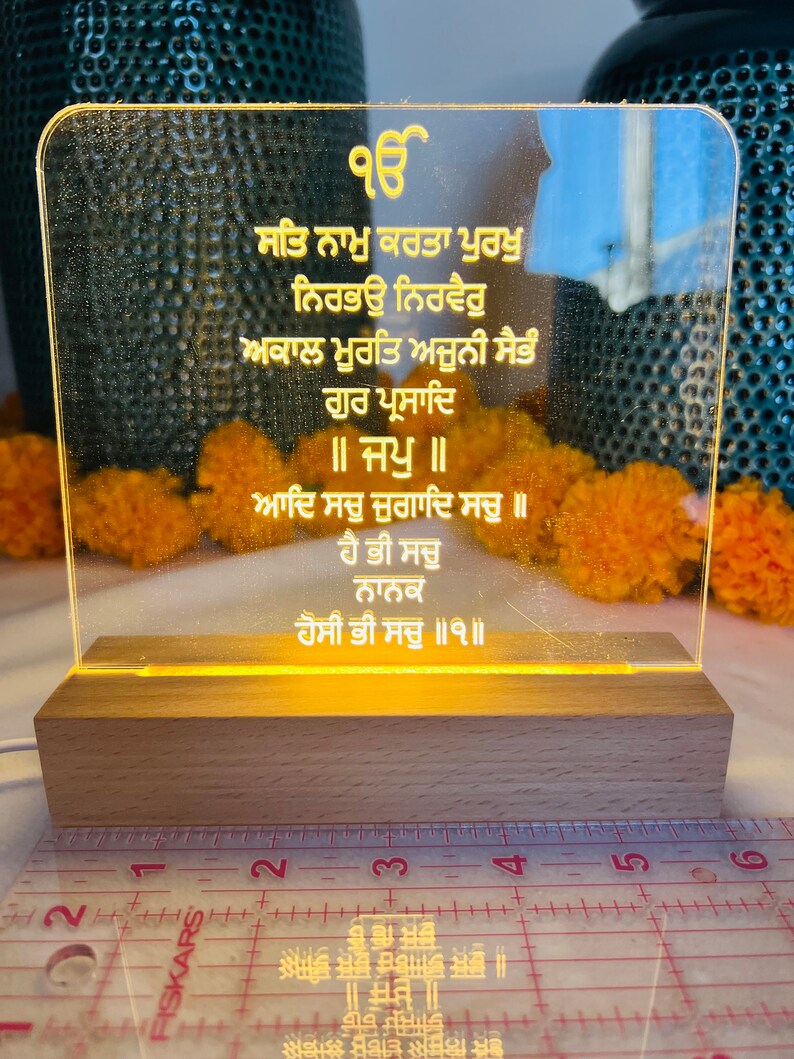 ੴ
ਸਤਿ ਨਾਮੁ ਕਰਤਾ ਪੁਰਖੁ
ਨਿਰਭਉ ਨਿਰਵੈਰੁ
ਅਕਾਲ ਮੂਰਤਿ ਅਜੂਨੀ ਸੈਭੰ
ਗੁਰ ਪ੍ਰਸਾਦਿ
॥ ਜਪੁ ॥
ਆਦਿ ਸਚੁ ਜੁਗਾਦਿ ਸਚੁ ॥
ਹੈ ਭੀ ਸਚੁ
ਨਾਨਕ
ਹੋਸੀ ਭੀ ਸਚੁ ॥੧॥
1 2 3 4 5 6
2
FISKARS
1